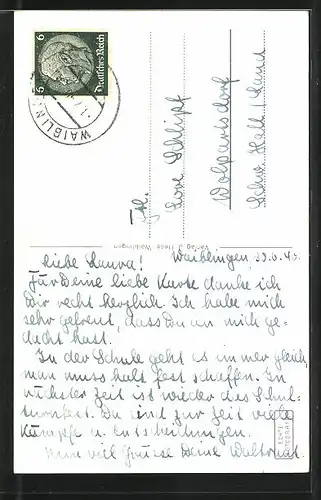 Deutsches Reich
6 6
WAIBLIN
Frl.
Lore Schlipf
Wolpertsdorf
Schw. Hall / Land
Verlag J. Hess Waiblingen
Waiblingen, 30.6.40.
Liebe Laura!
Für Deine liebe Karte danke ich
Dir recht herzlich. Ich habe mich
sehr gefreut, dass Du an mich ge-
dacht hast.
In der Schule geht es immer gleich,
man muss halt fest schaffen. In
nächster Zeit ist wieder das Schul-
turnfest. Da sind zur Zeit viele
Kämpfe u. Entscheidungen.
Nun viel Grüsse Deine Waltraut.